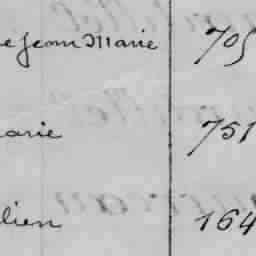 e Jean Marie 705
arie 751
lien 164